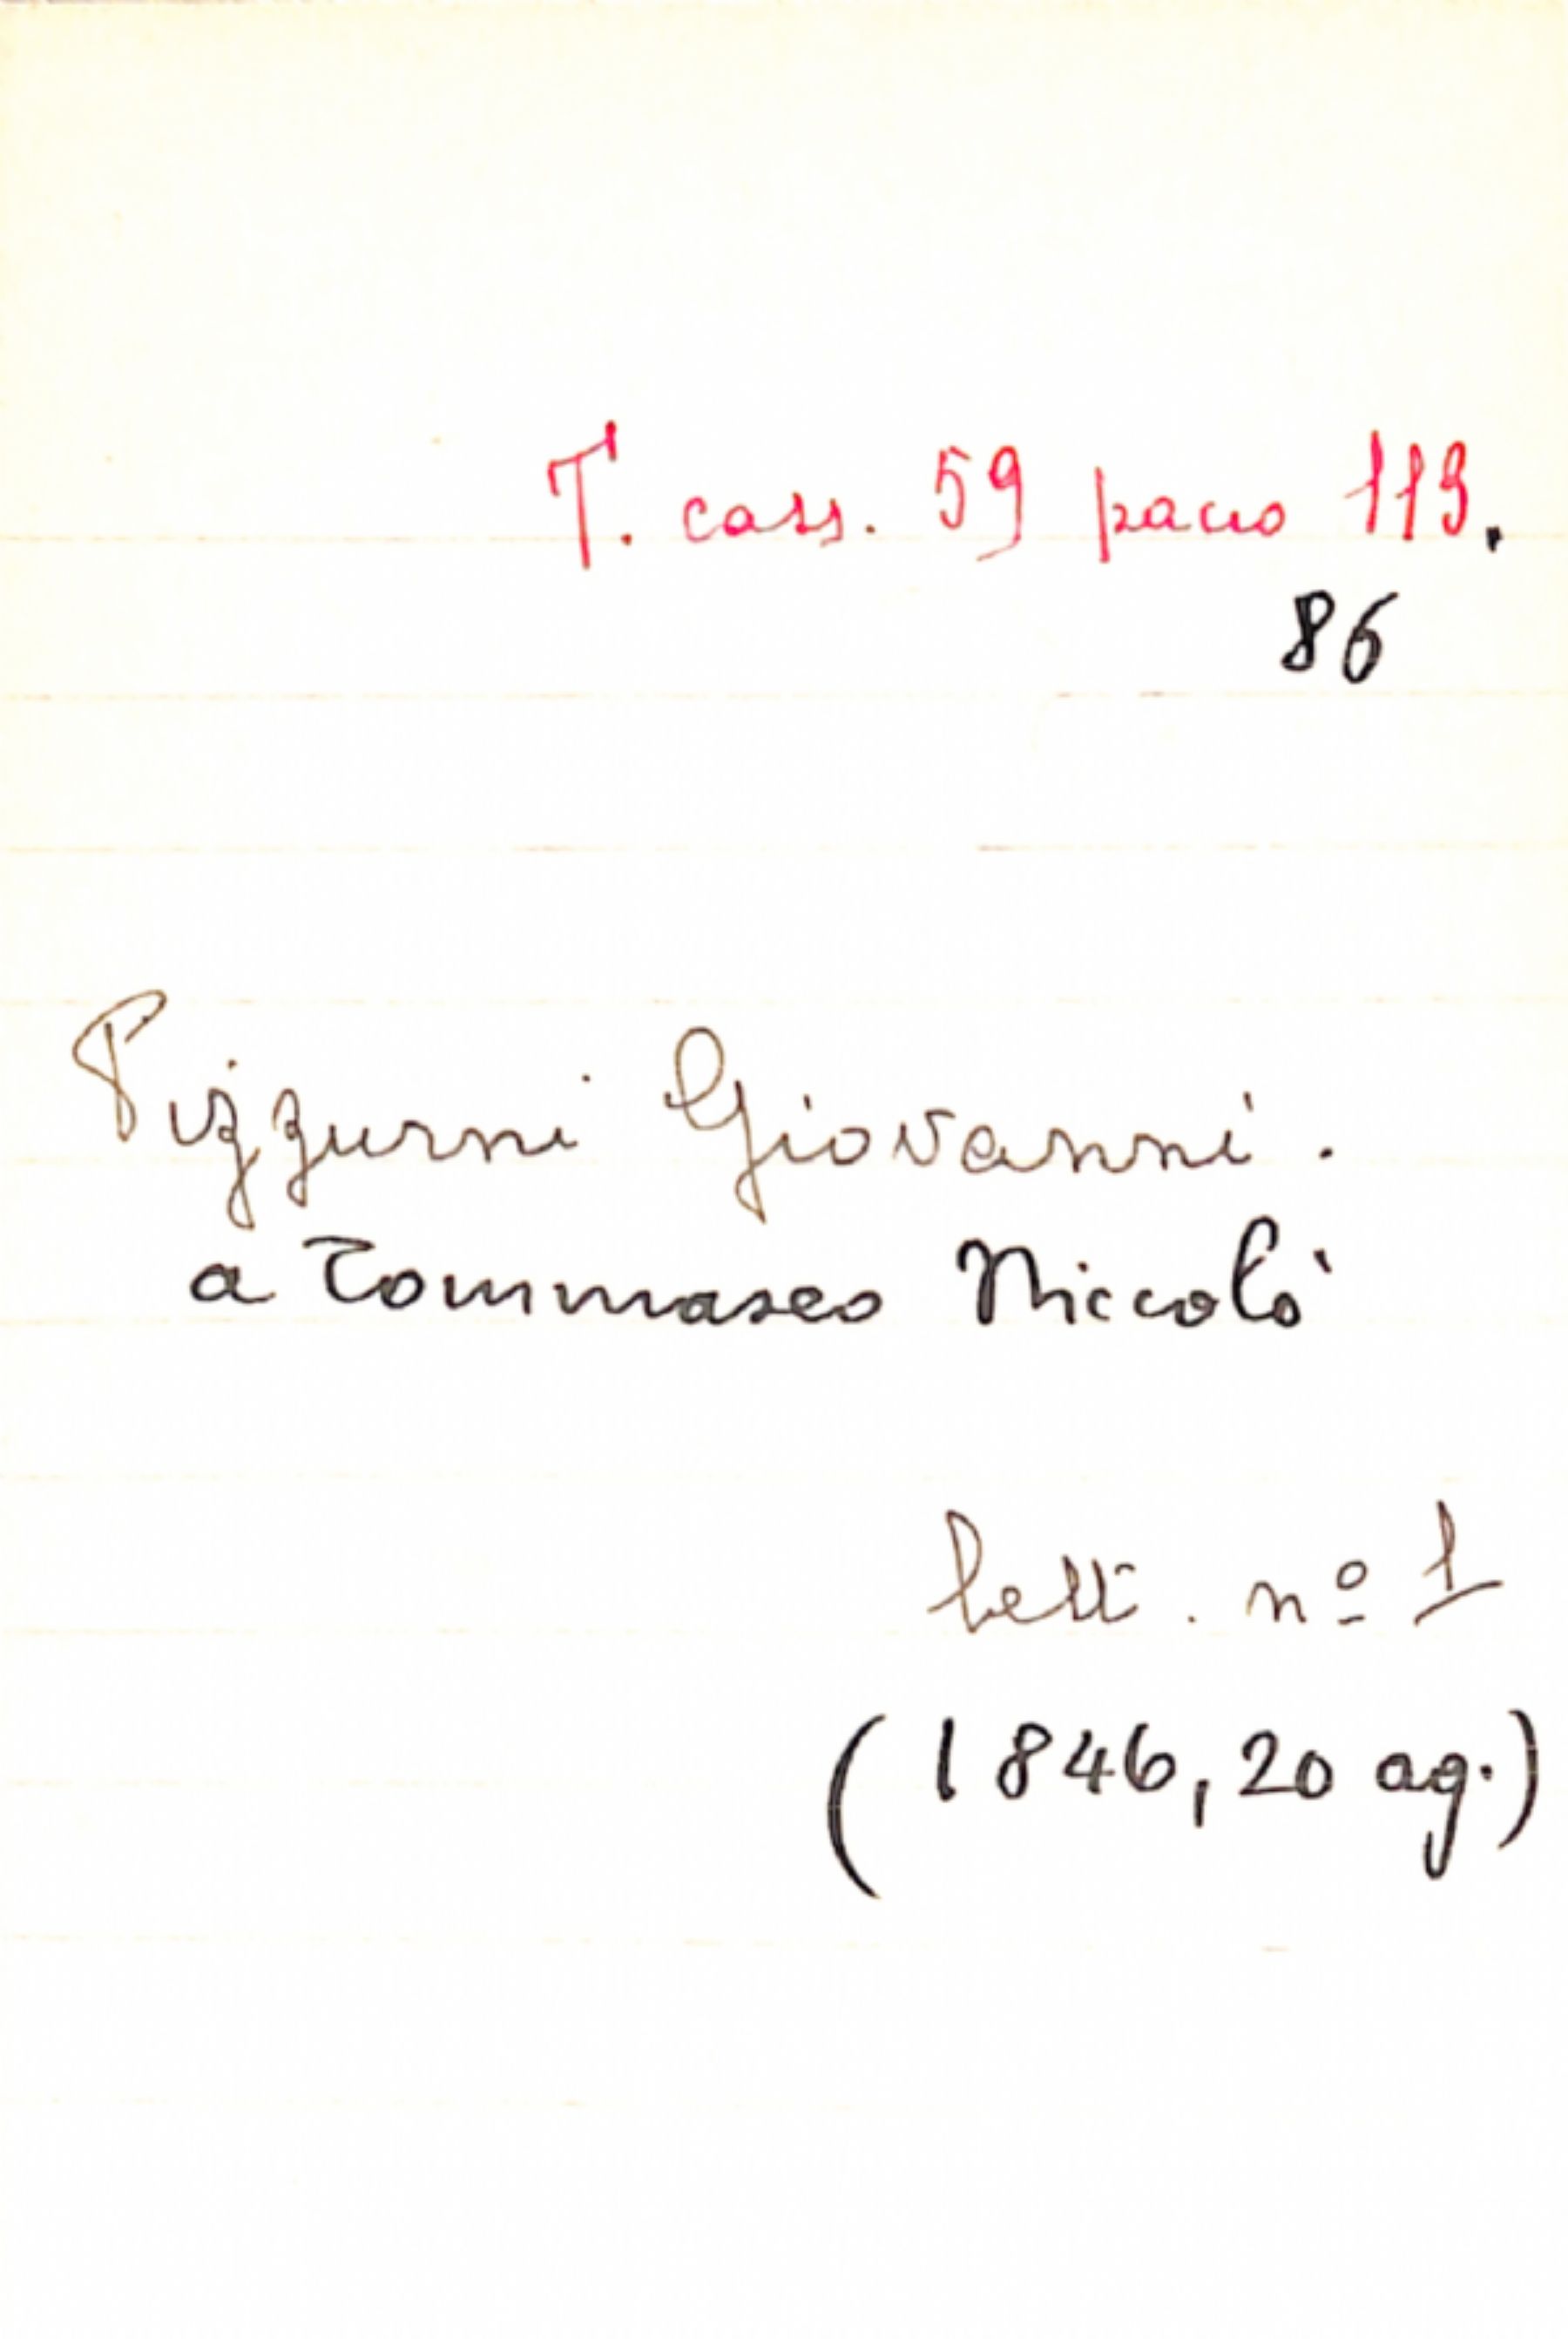 T. cass. 59 pacco 119.
86
Pizzurni Giovanni.
a Tommaseo Niccolò
lett. nº 1
(1846, 20 ag.)